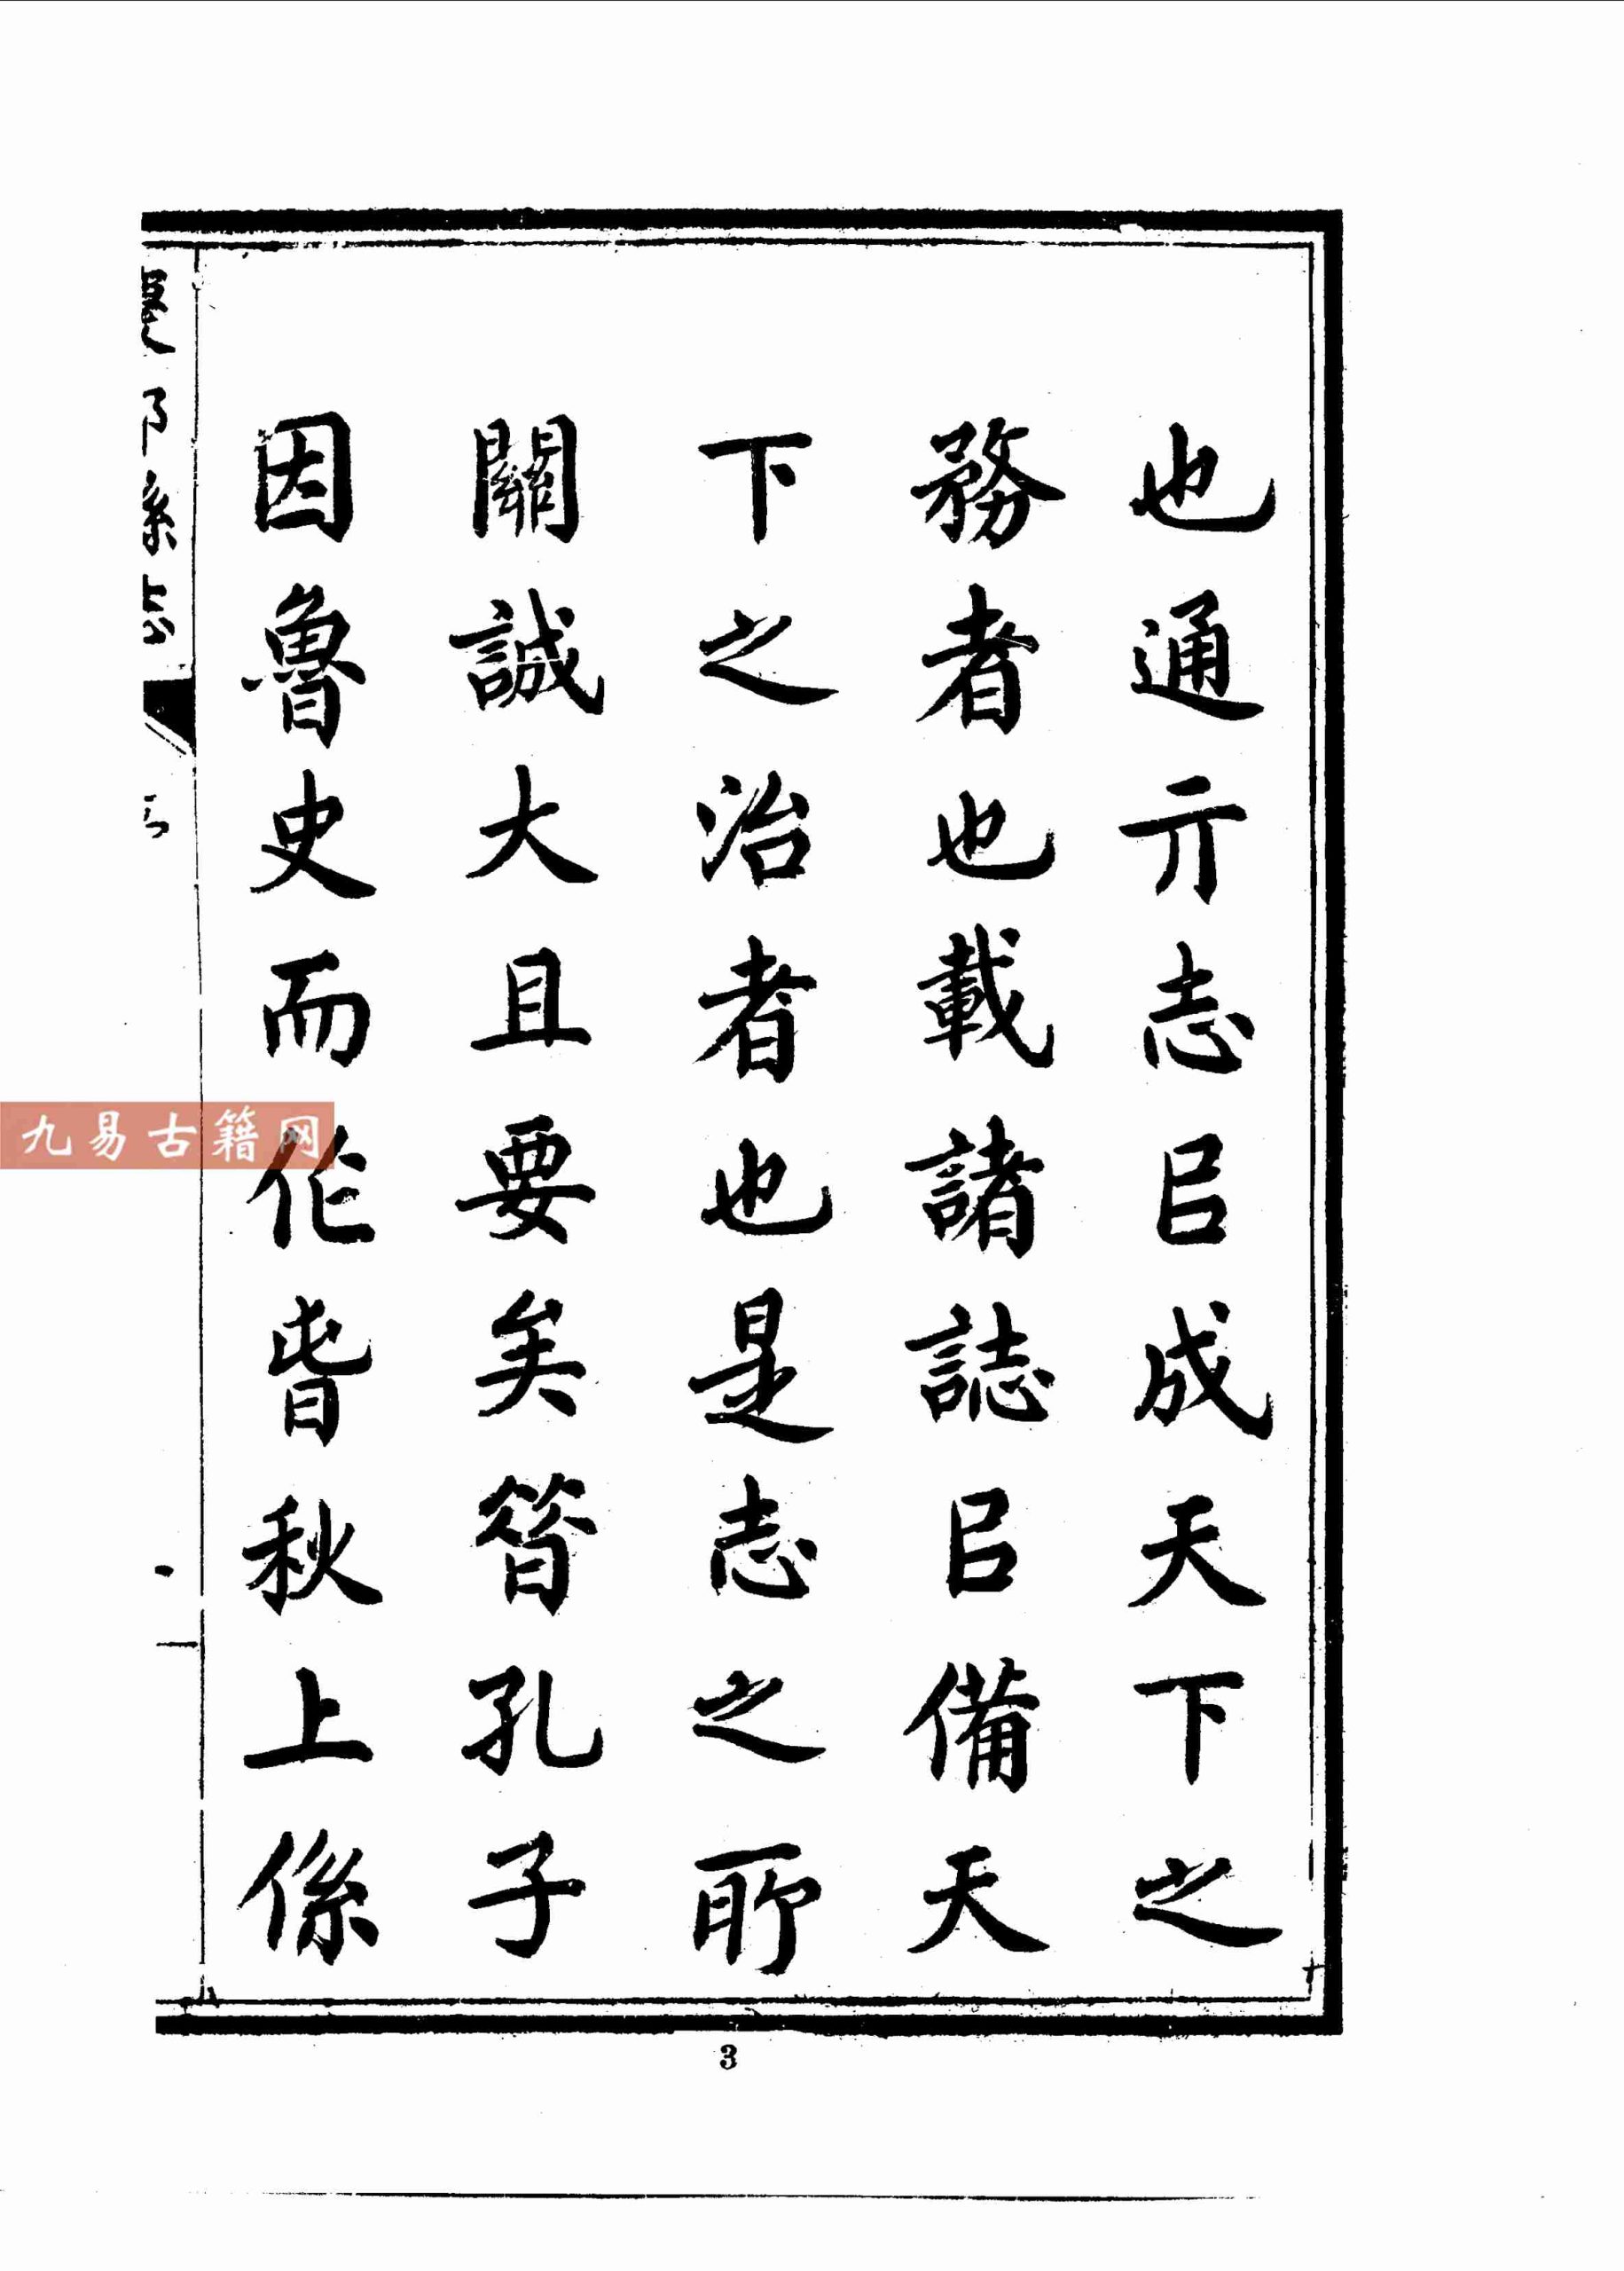 也通亓志㠯成天下之
務者也載諸誌㠯備天
下之治者也是志之所
關誠大且要矣㫺孔子
因魯史而作旾秋上係
縣志
九易古籍网
3